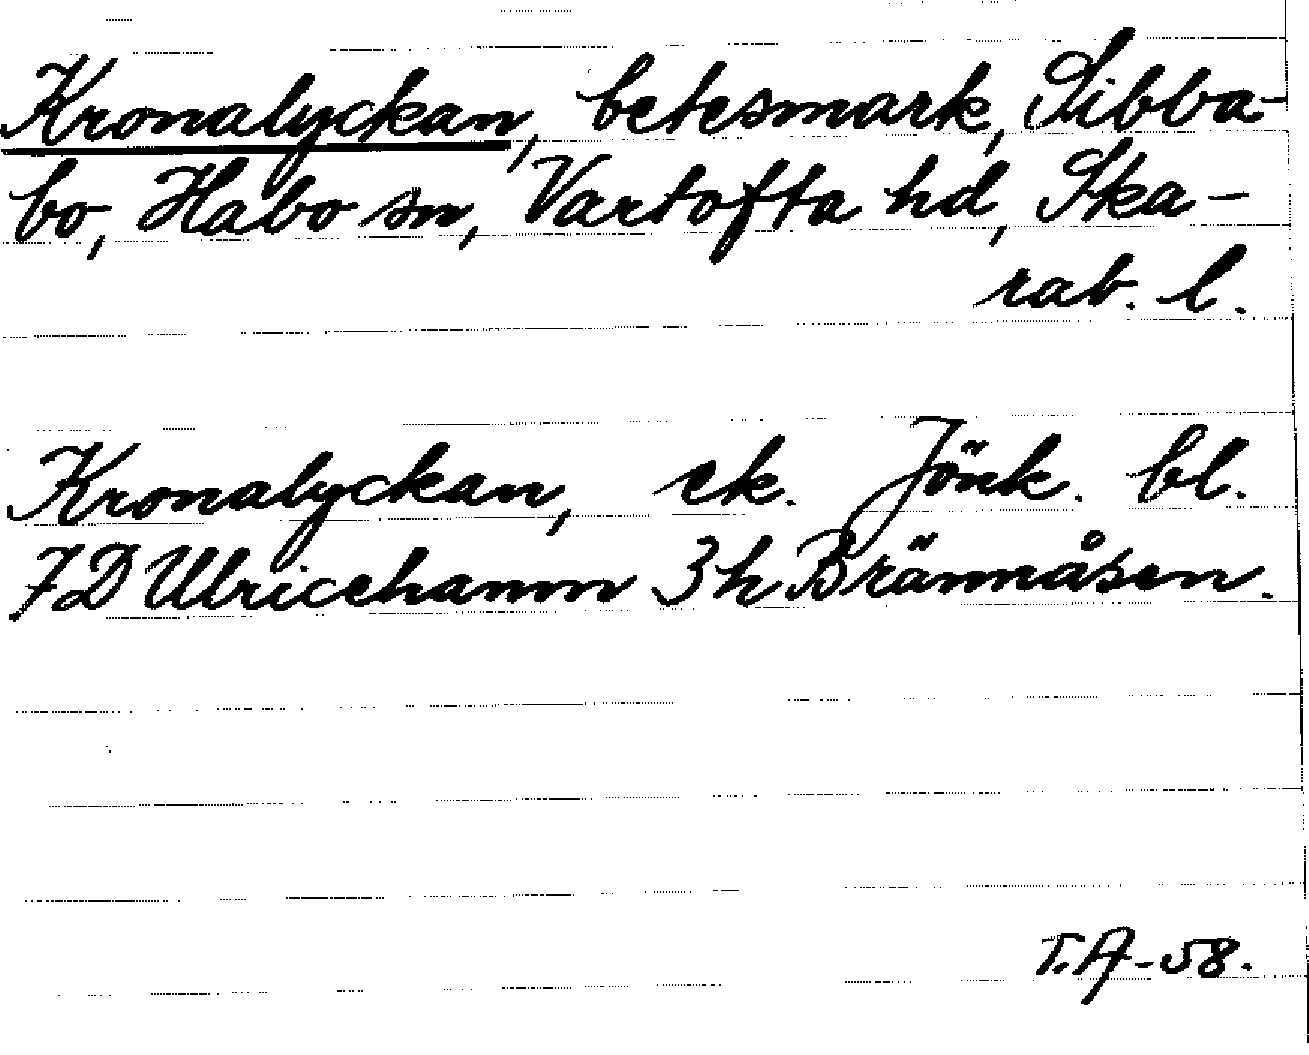 Kronalyckan, betesmark, Sibba-
bo, Habo sn, Vartofta hd, Ska-
rab. l.
Kronalyckan, ek. Jönk. bl.
7D Ulricehamn 3h Brännåsen.
T.A-58.